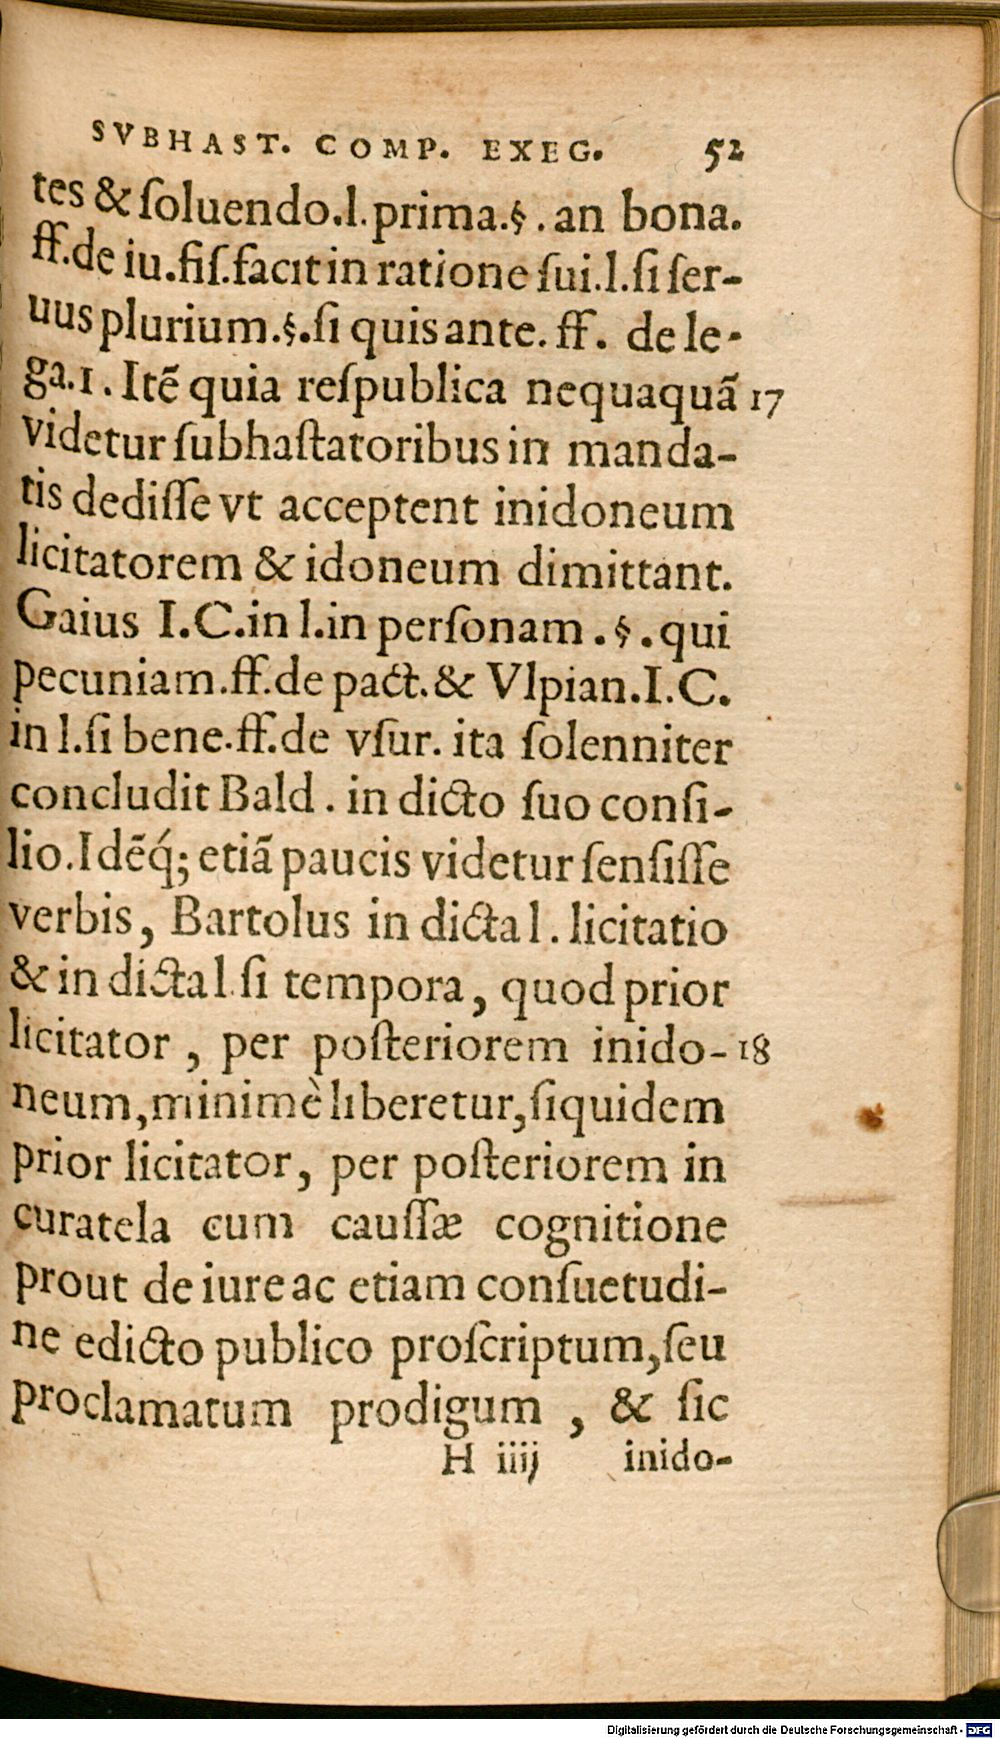 SVBHAST. COMP. EXEG. 52
tes & ſoluendo.l.prima.§.an bona.
ff.de iu.fiſ.facit in ratione ſui.l.ſi ſer-
uus plurium.§.ſi quis ante.ff. de le-
ga.1. Itẽ quia reſpublica nequaquã 17
videtur ſubhaſtatoribus in manda-
tis dediſſe vt acceptent inidoneum
licitatorem & idoneum dimittant.
Gaius I.C.in l.in perſonam.§.qui
pecuniam.ff.de pact.& Vlpian.I.C.
in l.ſi bene.ff.de vſur. ita ſolenniter
concludit Bald. in dicto ſuo conſi-
lio.Idẽq́; etiã paucis videtur ſenſiſſe
verbis, Bartolus in dicta l. licitatio
& in dicta l.ſi tempora, quod prior
licitator, per poſteriorem inido- 18
neum,minimè liberetur,ſiquidem
prior licitator, per poſteriorem in
curatela cum cauſſæ cognitione
prout de iure ac etiam conſuetudi-
ne edicto publico proſcriptum,ſeu
proclamatum prodigum, & ſic
H iiij inido-
Digitalisierung gefördert durch die Deutsche Forschungsgemeinschaft - DFG